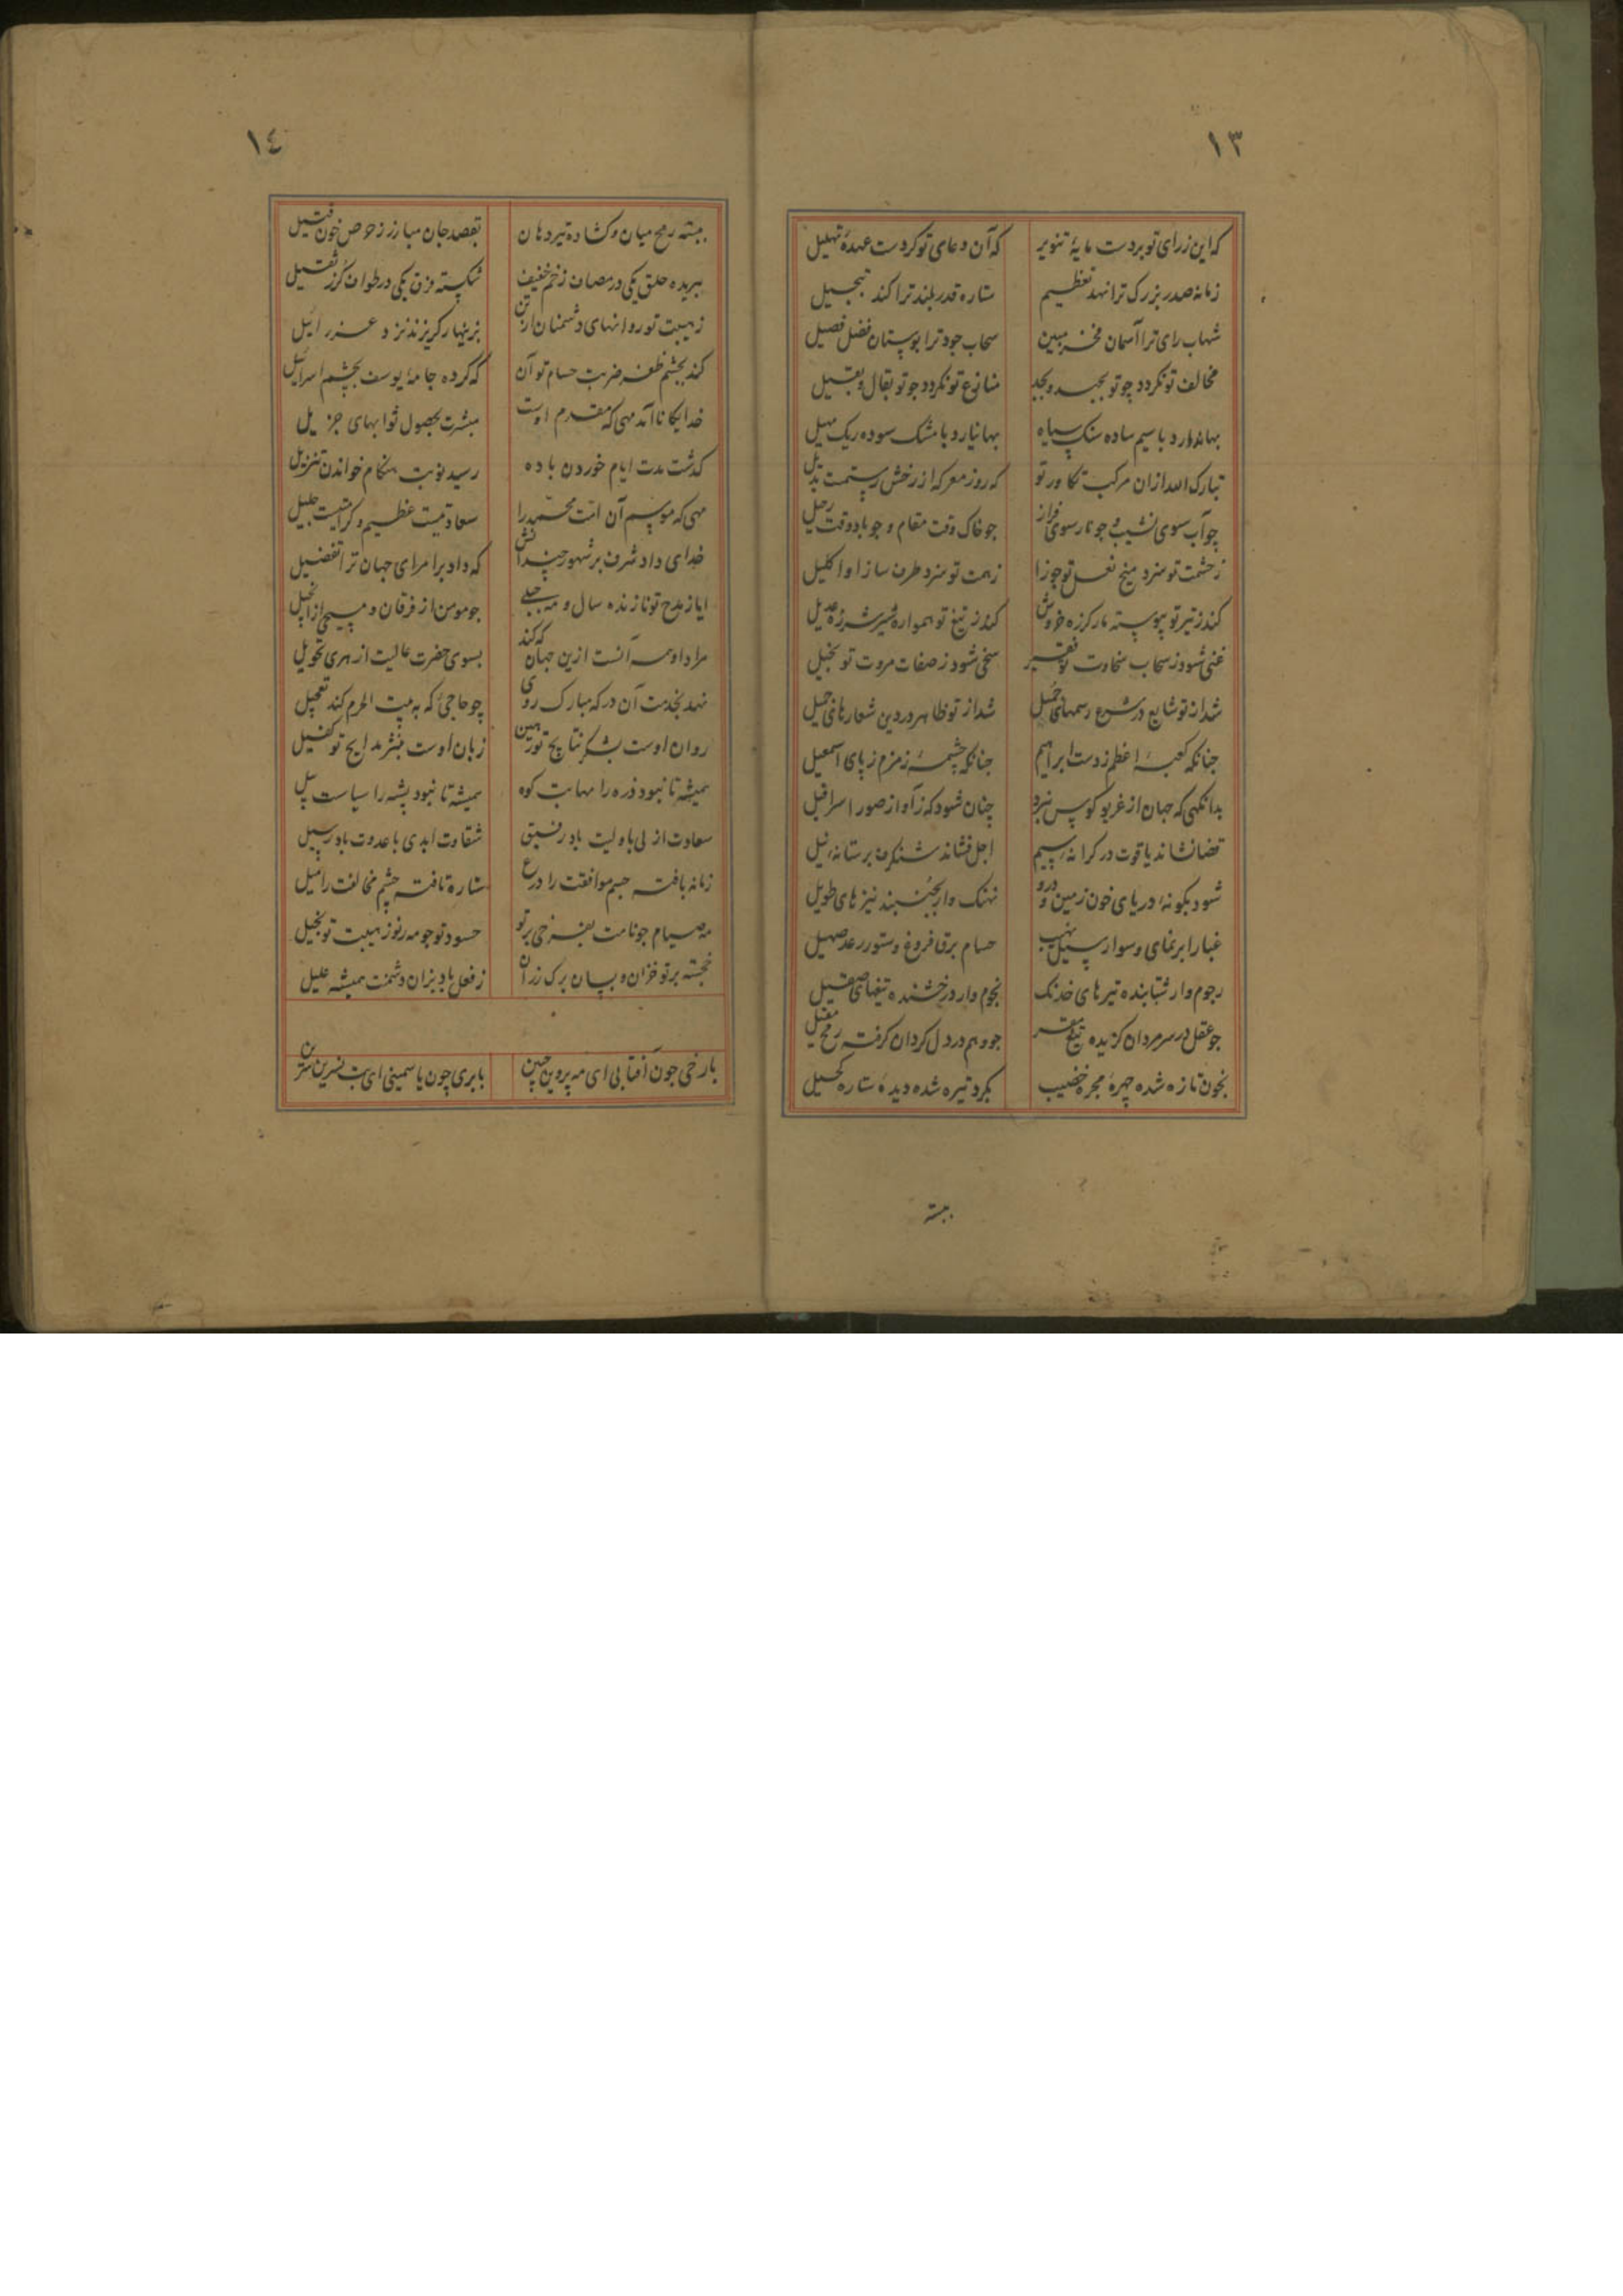 ١٣
که این ز رای تو بردست مایهٔ تنویر که آن دعای تو کردست عهدهٔ تهلیل
زمانه صدر بزرک ترا نهد تعظیم ستاره قدر بلند ترا کند تبجیل
شهاب رای ترا آسمان فخر مبین سحاب جود ترا بوستان فضل فصیل
مخالف تو نکردد چو تو بجد منازع تو نکردد جو تو بقال و بقیل
بها ندارد با سیم ساده سنک سیاه بها نیارد با مشک سوده ریک مهیل
تبارک الله ازان مرکب تکاور تو که روز معرکه از رخش رستمت بدیل
چو آب سوی نشیب و چو نار سوی فراز جو خاک وقت مقام و جو باد وقت رحیل
ز حشمت تو سزد میخ نعل تو جوزا ز همت تو سزد طرف ساز او اکلیل
کند ز تیر تو پیوسته مار کرزه خروش کند ز تیغ تو همواره شیر شرزه عدیل
غنی شود ز سحاب سخاوت تو فقیر سخی شود ز صفات مروت تو بخیل
شد از تو شایع در شرع رسمهای جمیل شد از تو ظاهر در دین شعارهای جمیل
جنانکه کعبهٔ اعظم ز دست ابراهیم جنانکه چشمهٔ زمزم ز پای اسمعیل
بدانکهی که جهان از غریو کوس نبرد چنان شود که ز آواز صور اسرافیل
قضا نشاند یاقوت در کرانهٔ سیم اجل فشاند شنکرف بر ستانهٔ نیل
شود بکونهٔ دریای خون زمین و درو نهنک وار بجنبند نیزهای طویل
غبار ابر نمای و سوار سیل نهیب حسام برق فروغ و ستور رعد صهیل
رجوم وار شتابنده تیرهای خدنک نجوم وار درخشنده تیغهای صقیل
جو عقل در سر مردان کزیده تیغ مقر جو وهم در دل کردان کرفته رمح مقیل
بخون تازه شده چهرهٔ مجره خضیب بکرد تیره شده دیدهٔ ستاره کحیل
ببسته
١٤
ببسته رمح میان و کشاده تیر دهان بقصد جان مبارز ز حوص خون قتیل
ببریده حلق یکی در مصان زخم خفیف شکسته فرق یکی در طوان کرز ثقیل
ز هیبت تو روانهای دشمنان از تن بزینهار کریزند نزد عزرائیل
کند بچشم ظفر ضربت حسام تو آن که کرده جامهٔ یوسف بچشم اسرائیل
خدایکانا آمد مهی که مقدم اوست مبشرت بحصول ثوابهای جزیل
کذشت مدت ایام خوردن باده رسید نوبت هنکام خواندن تنزیل
مهی که موسم آن امت محمد را سعادتیست عظیم و کرامتیست جلیل
خدای داد شرف بر شهور چندانش که داد بر امرای جهان ترا تفضیل
ایا ز مدح تو نازنده سال و مه جبلی جو مومن از فرقان و مسیحی از انجیل
مراد او همه آنست ازین جهان که کند بسوی حضرت عالیت از هری تحویل
نهد بخدمت آن درکه مبارک روی چو حاجئ که به بیت الحرم کند تعجیل
روان اوست بشکر نتایج تو رهین زبان اوست بنشر مدایح تو کفیل
همیشه تا نبود ذره را مهابت کوه همیشه تا نبود پشه را سیاست پیل
سعادت ازلی با ولیت باد رفیق شقاوت ابدی با عدوت باد رسیل
زمانه بافته جسم موافقت را درع ستاره تافته چشم مخالفت را میل
مه صیام جو نامت بفرخی بر تو حسود تو جو مه نو ز هیبت تو نحیل
خجسته بر تو خزان و بسان برک رزان ز فعل باد بزان دشمنت همیشه علیل
با رخی جون آفتابی ای مه پروین جبین با بری چون یاسمینی ای بت نسرین سرین